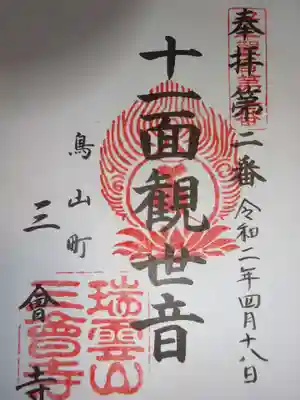 奉拝第二番令和二年四月十八日
十一面観世音
鳥山町
三會寺
瑞雲山
三會寺